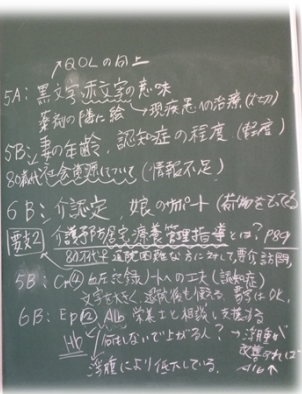 ↗QOLの向上
5A：黒文字、赤文字の意味
薬剤の隣に絵→現疾患への治療（大切）
5B：妻の年齢、認知症の程度（軽度）
80歳代 社会資源について（情報不足）
6B：介認定、娘のサポート（荷物をもってくる
要支2 介護予防居宅療養管理指導とは？P89
80才代 通院困難な方に対して 訪問
5B：Cp④ 血圧記録ノートへの工夫（認知症）
文字を大きく、退院後も使える、番号はOK、
6B：Ep② Alb 栄養士と相談し支援する
Hb 何もしないで上がる人？→浮腫が
浮腫により低下している。改善すれば
Alb↑